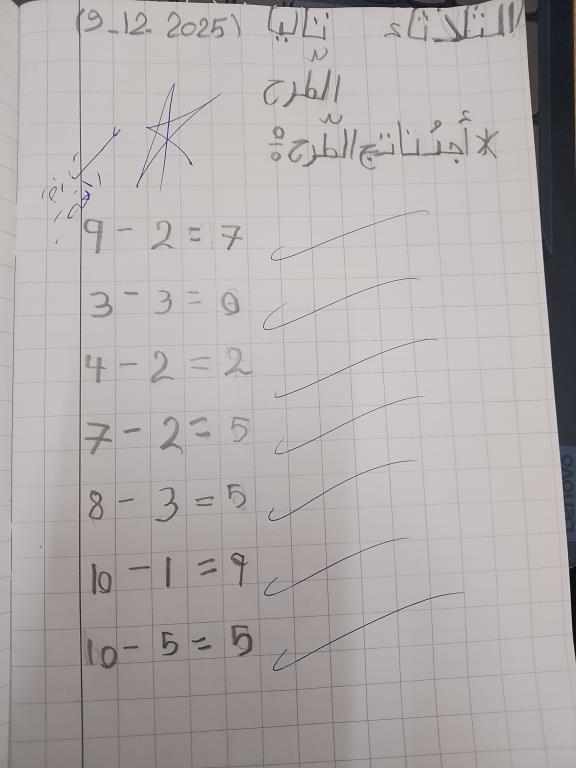 الثلاثاء (9-12-2025)
الطرح
* أجد ناتج الطرح :
9 - 2 = 7
3 - 3 = 0
4 - 2 = 2
7 - 2 = 5
8 - 3 = 5
10 - 1 = 9
10 - 5 = 5
Lenovo